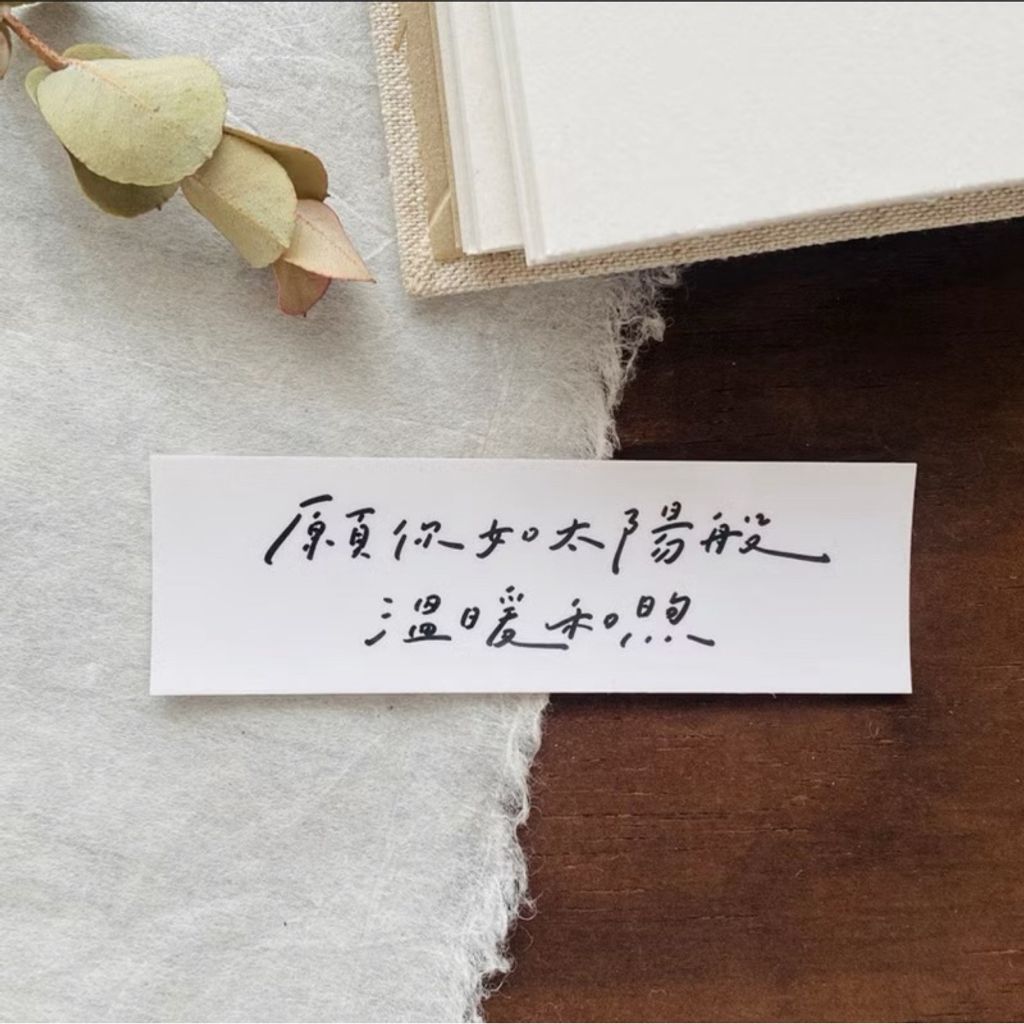 願你如太陽般
溫暖和煦